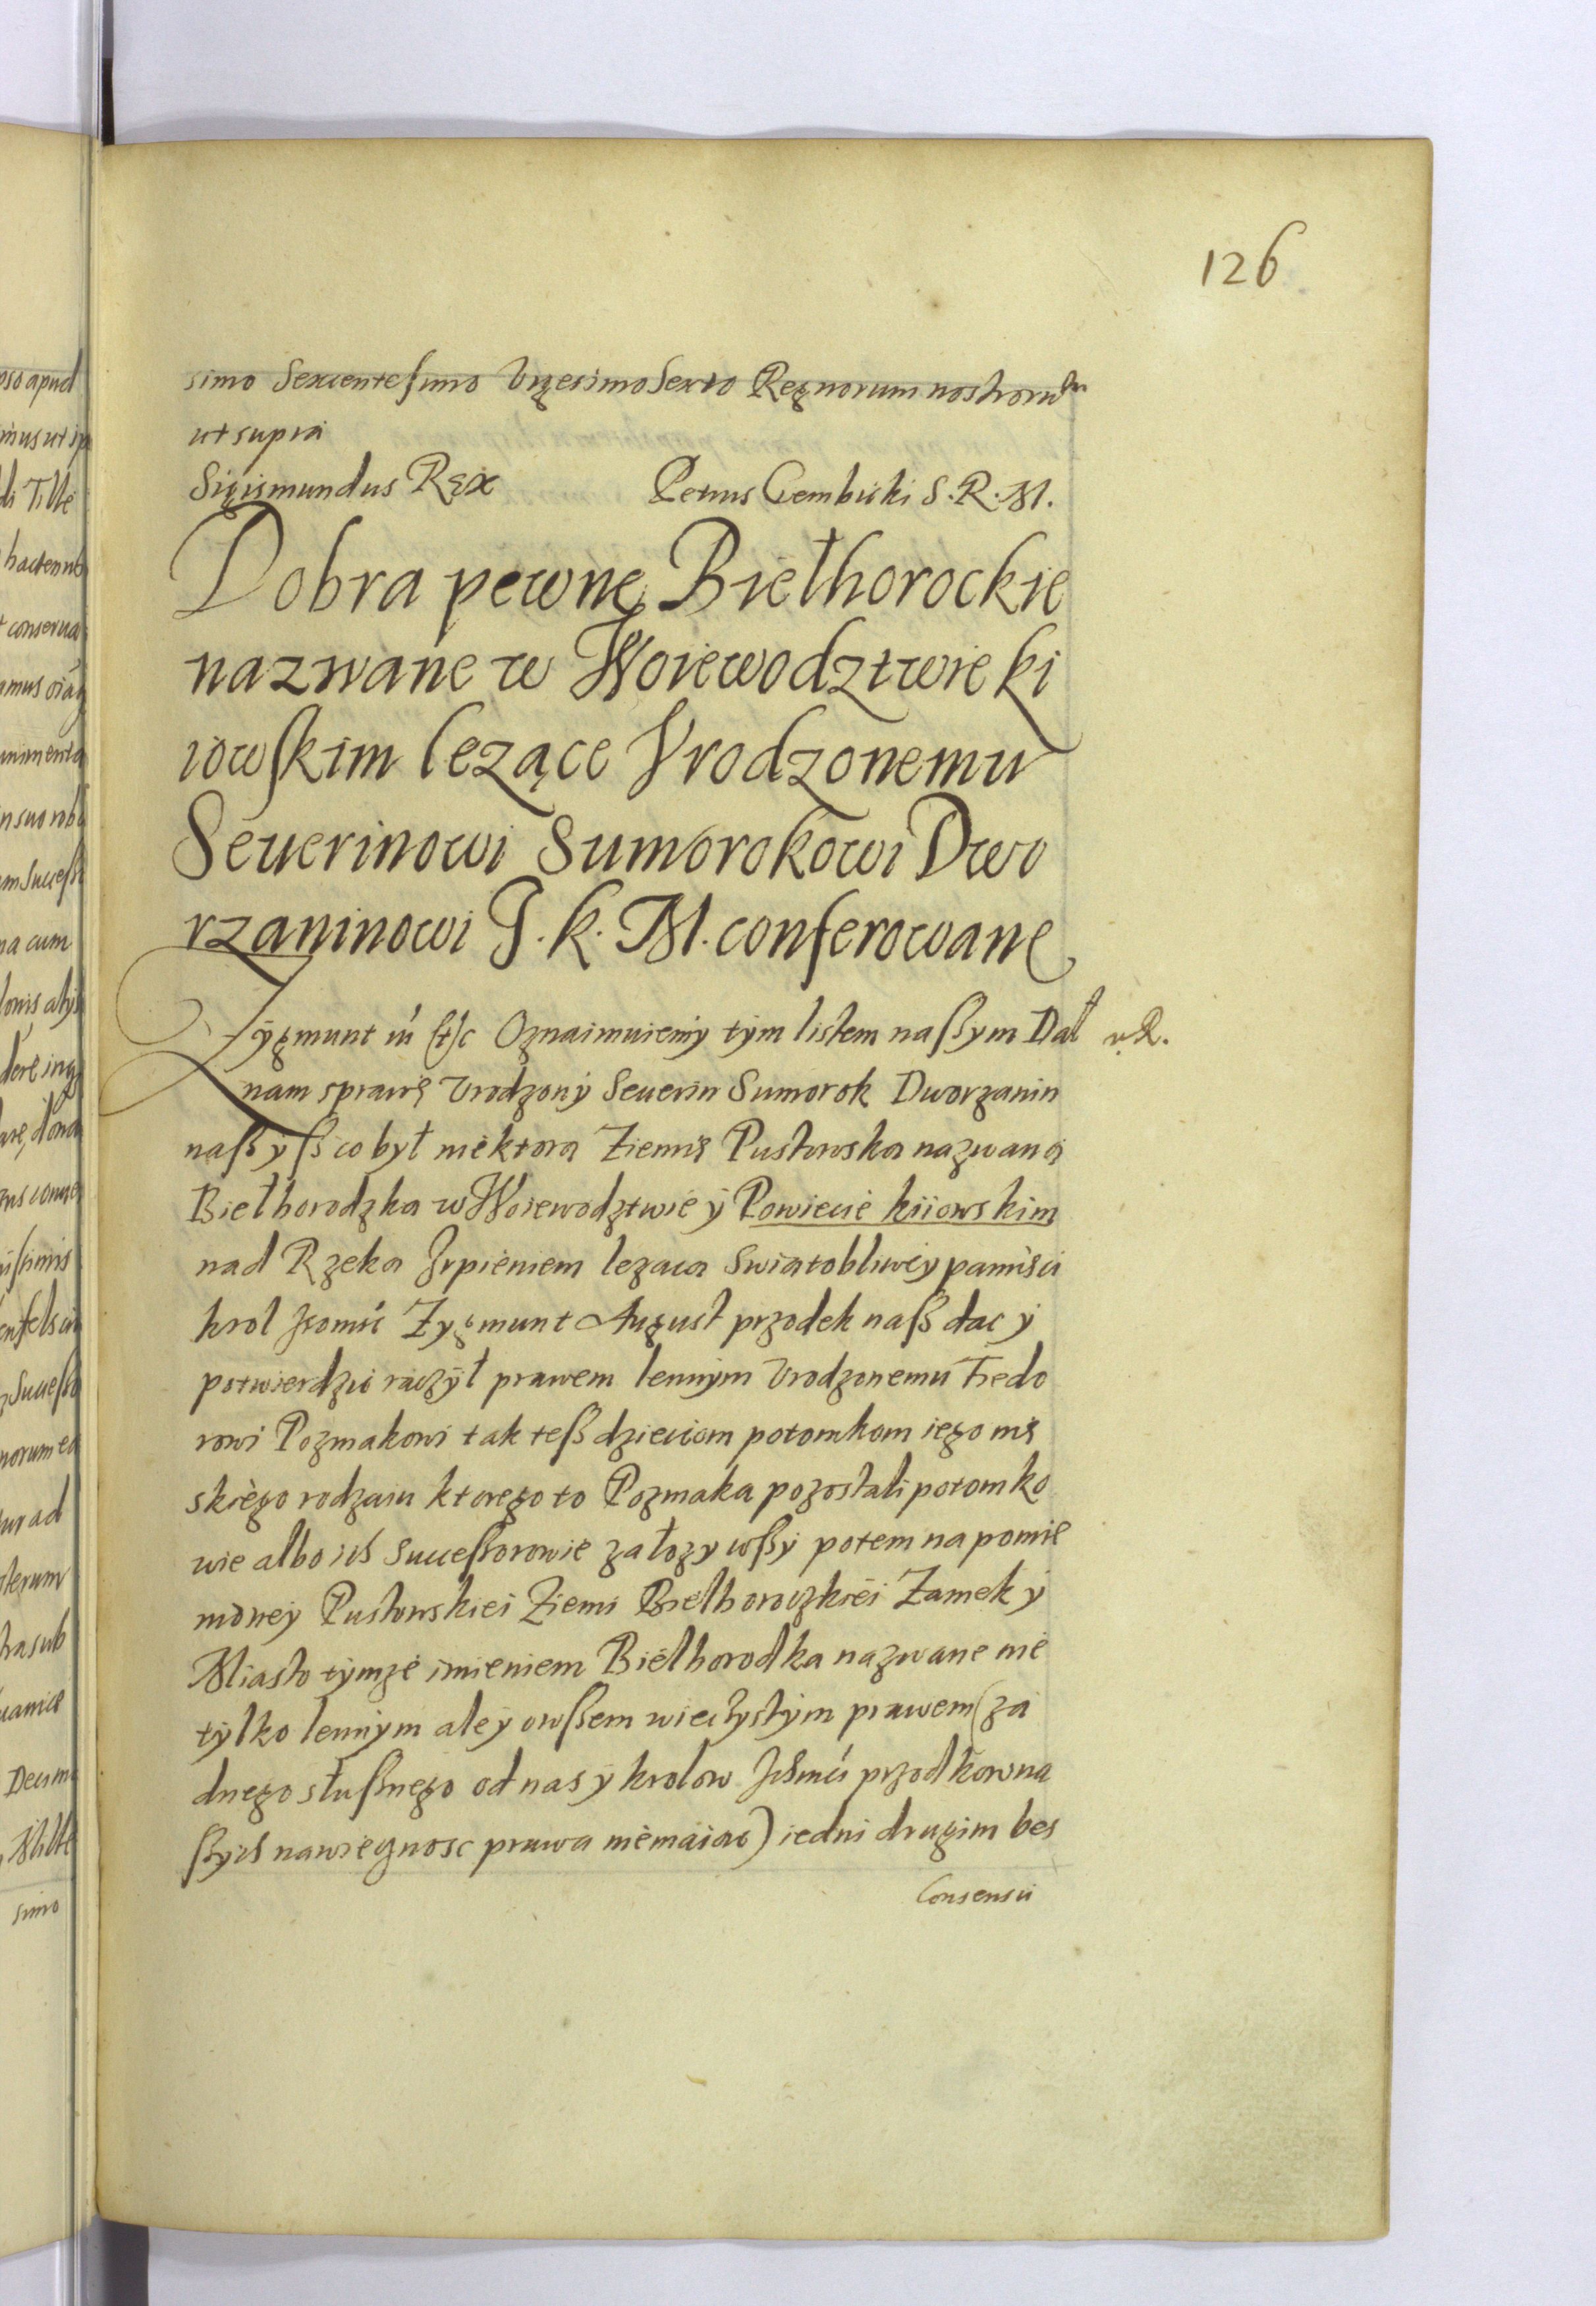 126
simo Sexcentesimo Vigesimo Sexto Regnorum nostrorum
ut supra
Sigismundus Rex Petrus Gembicki S. R. M.
Dobra pewne Biełhorockie
nazwane w Woiewodztwie ki
iowskim lezące Vrodzonemu
Seuerinowi Sumorokowi Dwo
rzaninowi J. k. M. conferowane
Zygmunt iii etc Oznaimuiemy tym listem naßym Dał
nam sprawę Vrodzony Seuerin Sumorok Dworzanin
naß yß co był niektora Ziemię Pustowska nazwaną
Biełhorodzka w Woiewodztwie y Powiecie kiiowskim
nad Rzeka Jrpieniem lezaca swiatobliwey pamięci
krol Jeomć Zygmunt August przodek naß dac y
potwierdzic raczył prawem lennym Vrodzonemu Fiedo
rowi Pozmakowi tak teß dzieciom potomkom iego mę
skiego rodzaiu ktorego to Pozmaka pozostali potomko
wie albo ich Successorowie załozywßy potem na pomie
nioney Pustowskiei Ziemi Bielhoroczkiei Zamek y
Miasto tymze imieniem Bielhorodka nazwane nie
tylko lennym ale y owßem wiectystym prawem (za
dnego słußnego od nas y krolow Jchmci przodkow na
ßych nawiecznosc prawa niemaiac) iedni drugim bes
Consensu